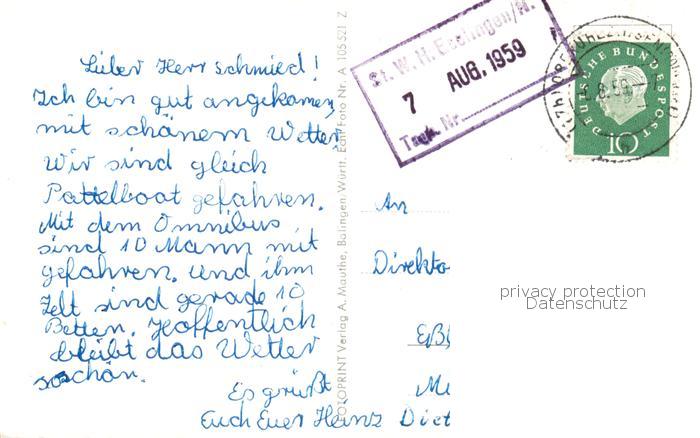 Lieber Herr schmied!
Ich bin gut angekomen,
mit schönem Wetter.
Wir sind gleich
Pattelboot gefahren.
Mit dem Omnibus
sind 10 Mann mit
gefahren. und ihm
Zelt sind gerade 10
Betten. Hoffentlich
bleibt das Wetter
so schön.
Es grüßt
Euch Euer Heinz Diet
FOTOPRINT Verlag A. Mauthe, Bölingen, Württ. Echt Foto Nr. A 105 521 Z
St. W. H. Esslingen/N.
7 AUG. 1959
Tagb. Nr.
DEUTSCHE BUNDESPOST
10
An
Direkto
privacy protection
Datenschutz